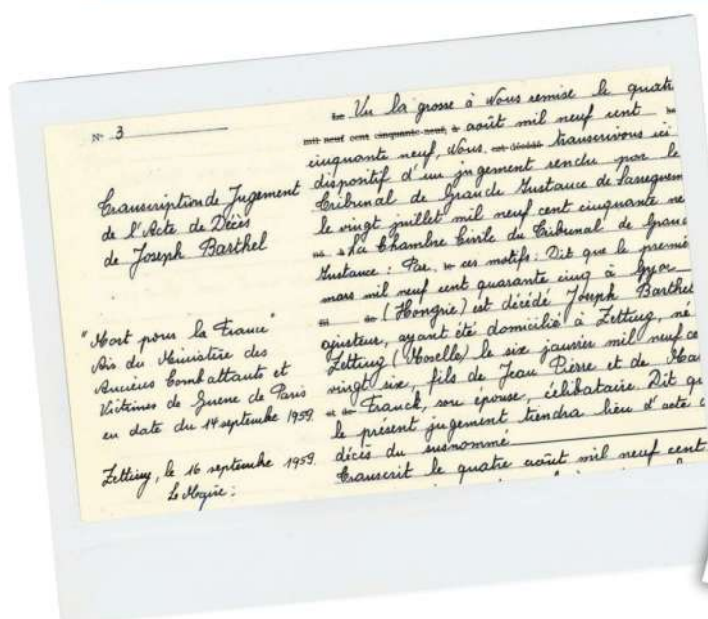 N° 3
Transcription de Jugement
de l'Acte de Décès
de Joseph Barthel
"Mort pour la France"
Avis du Ministère des
Anciens Combattants et
Victimes de Guerre de Paris
en date du 14 septembre 1959.
Zetting, le 16 septembre 1959.
Le Maire :
Le Vu la grosse à Nous remise le quatre
mil neuf cent cinquante-neuf, à août mil neuf cent
cinquante neuf, Nous, est décédé transcrivons ici
dispositif d'un jugement rendu par le
Tribunal de Grande Instance de Sarreguem
le vingt juillet mil neuf cent cinquante ne
La Chambre Civile du Tribunal de Granc
Instance : Par ces motifs : Dit que le premie
mars mil neuf cent quarante cinq à Gyor
(Hongrie) est décédé Joseph Barthel
ajusteur, ayant été domicilié à Zetting, né
Zetting (Moselle) le six janvier mil neuf ce
vingt six, fils de Jean Pierre et de Ma
Franck, son épouse, célibataire. Dit qu
le présent jugement tiendra lieu d'acte
décès du susnommé
Transcrit le quatre août mil neuf cent